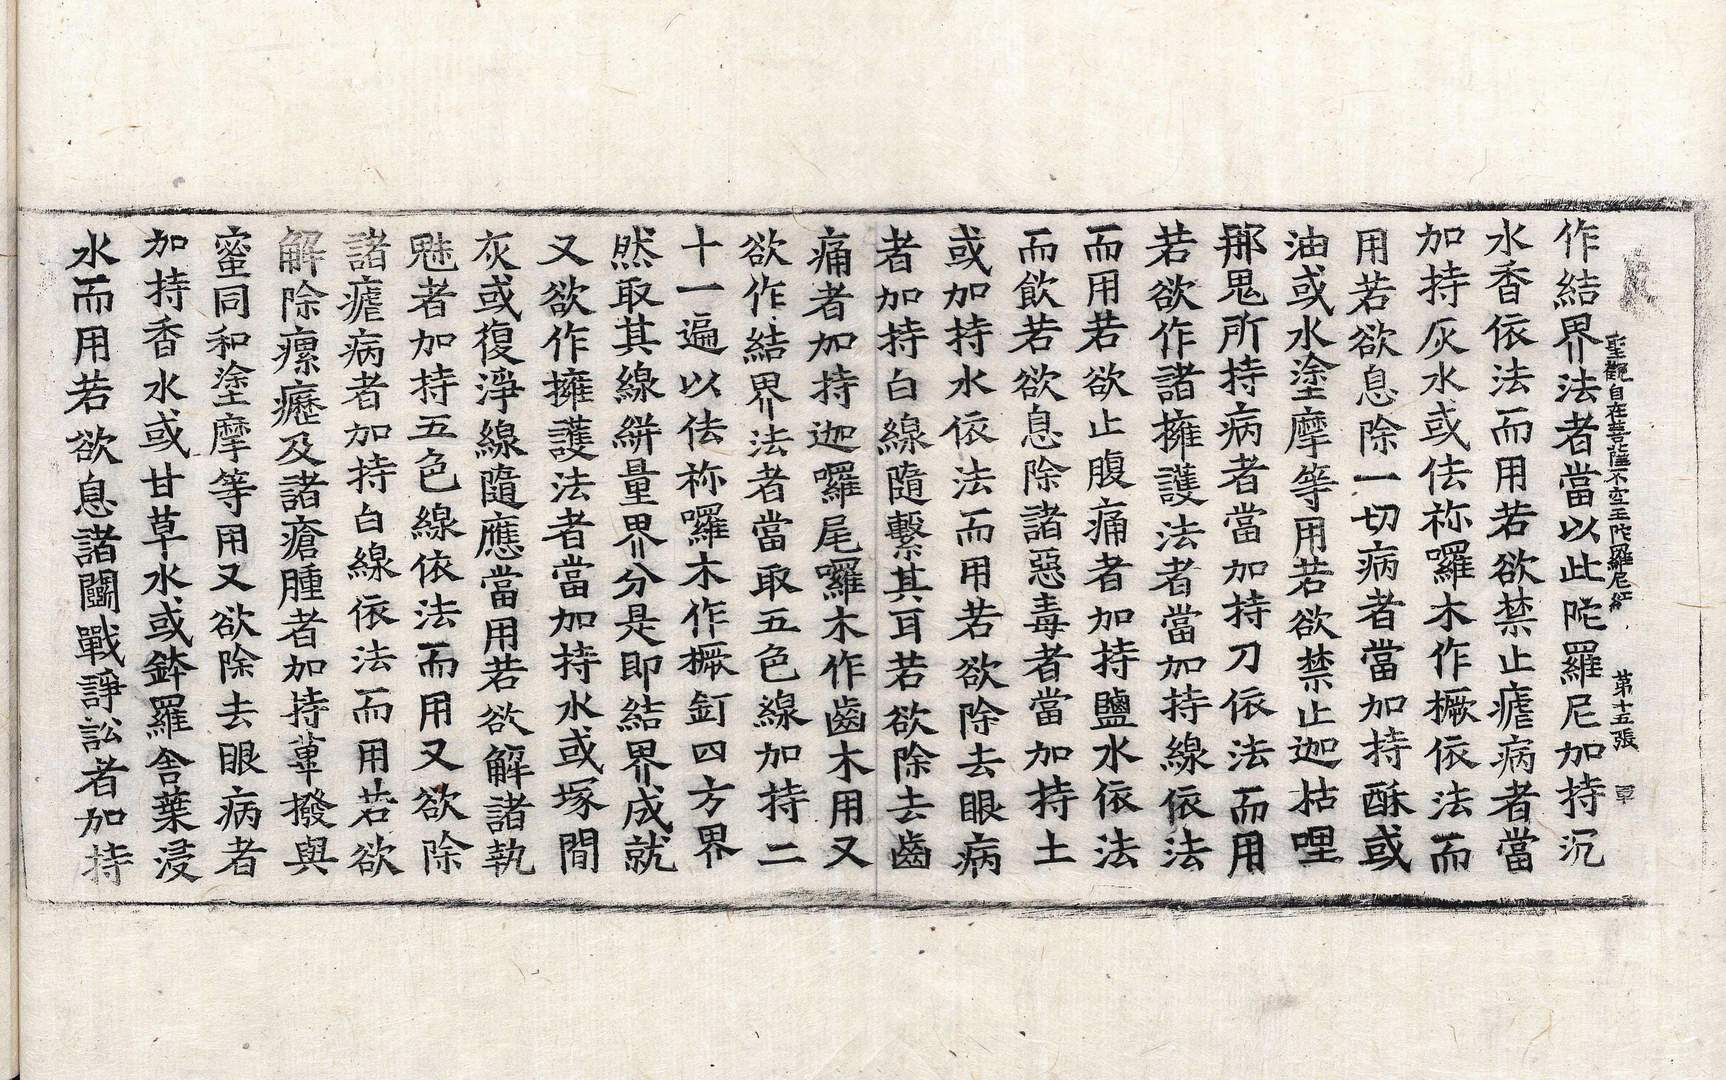 聖觀自在菩薩不空王陀羅尼経 第十五張
作結界法者當以此陀羅尼加持沉
水香依法而用若欲禁止瘧病者當
加持灰水或佉祢囉木作橛依法而
用若欲息除一切病者當加持酥或
油或水塗摩等用若欲禁止迦拈哩
那鬼所持病者當加持刀依法而用
若欲作諸擁護法者當加持線依法
而用若欲止腹痛者加持鹽水依法
而飲若欲息除諸惡毒者當加持土
或加持水依法而用若欲除去眼病
者加持白線隨繫其耳若欲除去齒
痛者加持迦囉尾囉木作齒木用又
欲作結界法者當取五色線加持二
十一遍以佉祢囉木作橛釘四方界
然取其線絣量界分是即結界成就
又欲作擁護法者當加持水或塚間
灰或復淨線隨應當用若欲解諸執
魅者加持五色線依法而用又欲除
諸瘧病者加持白線依法而用若欲
解除瘰癧及諸瘡腫者加持蓽撥與
蜜同和塗摩等用又欲除去眼病者
加持香水或甘草水或鉢羅舍葉浸
水而用若欲息諸鬪戰諍訟者加持